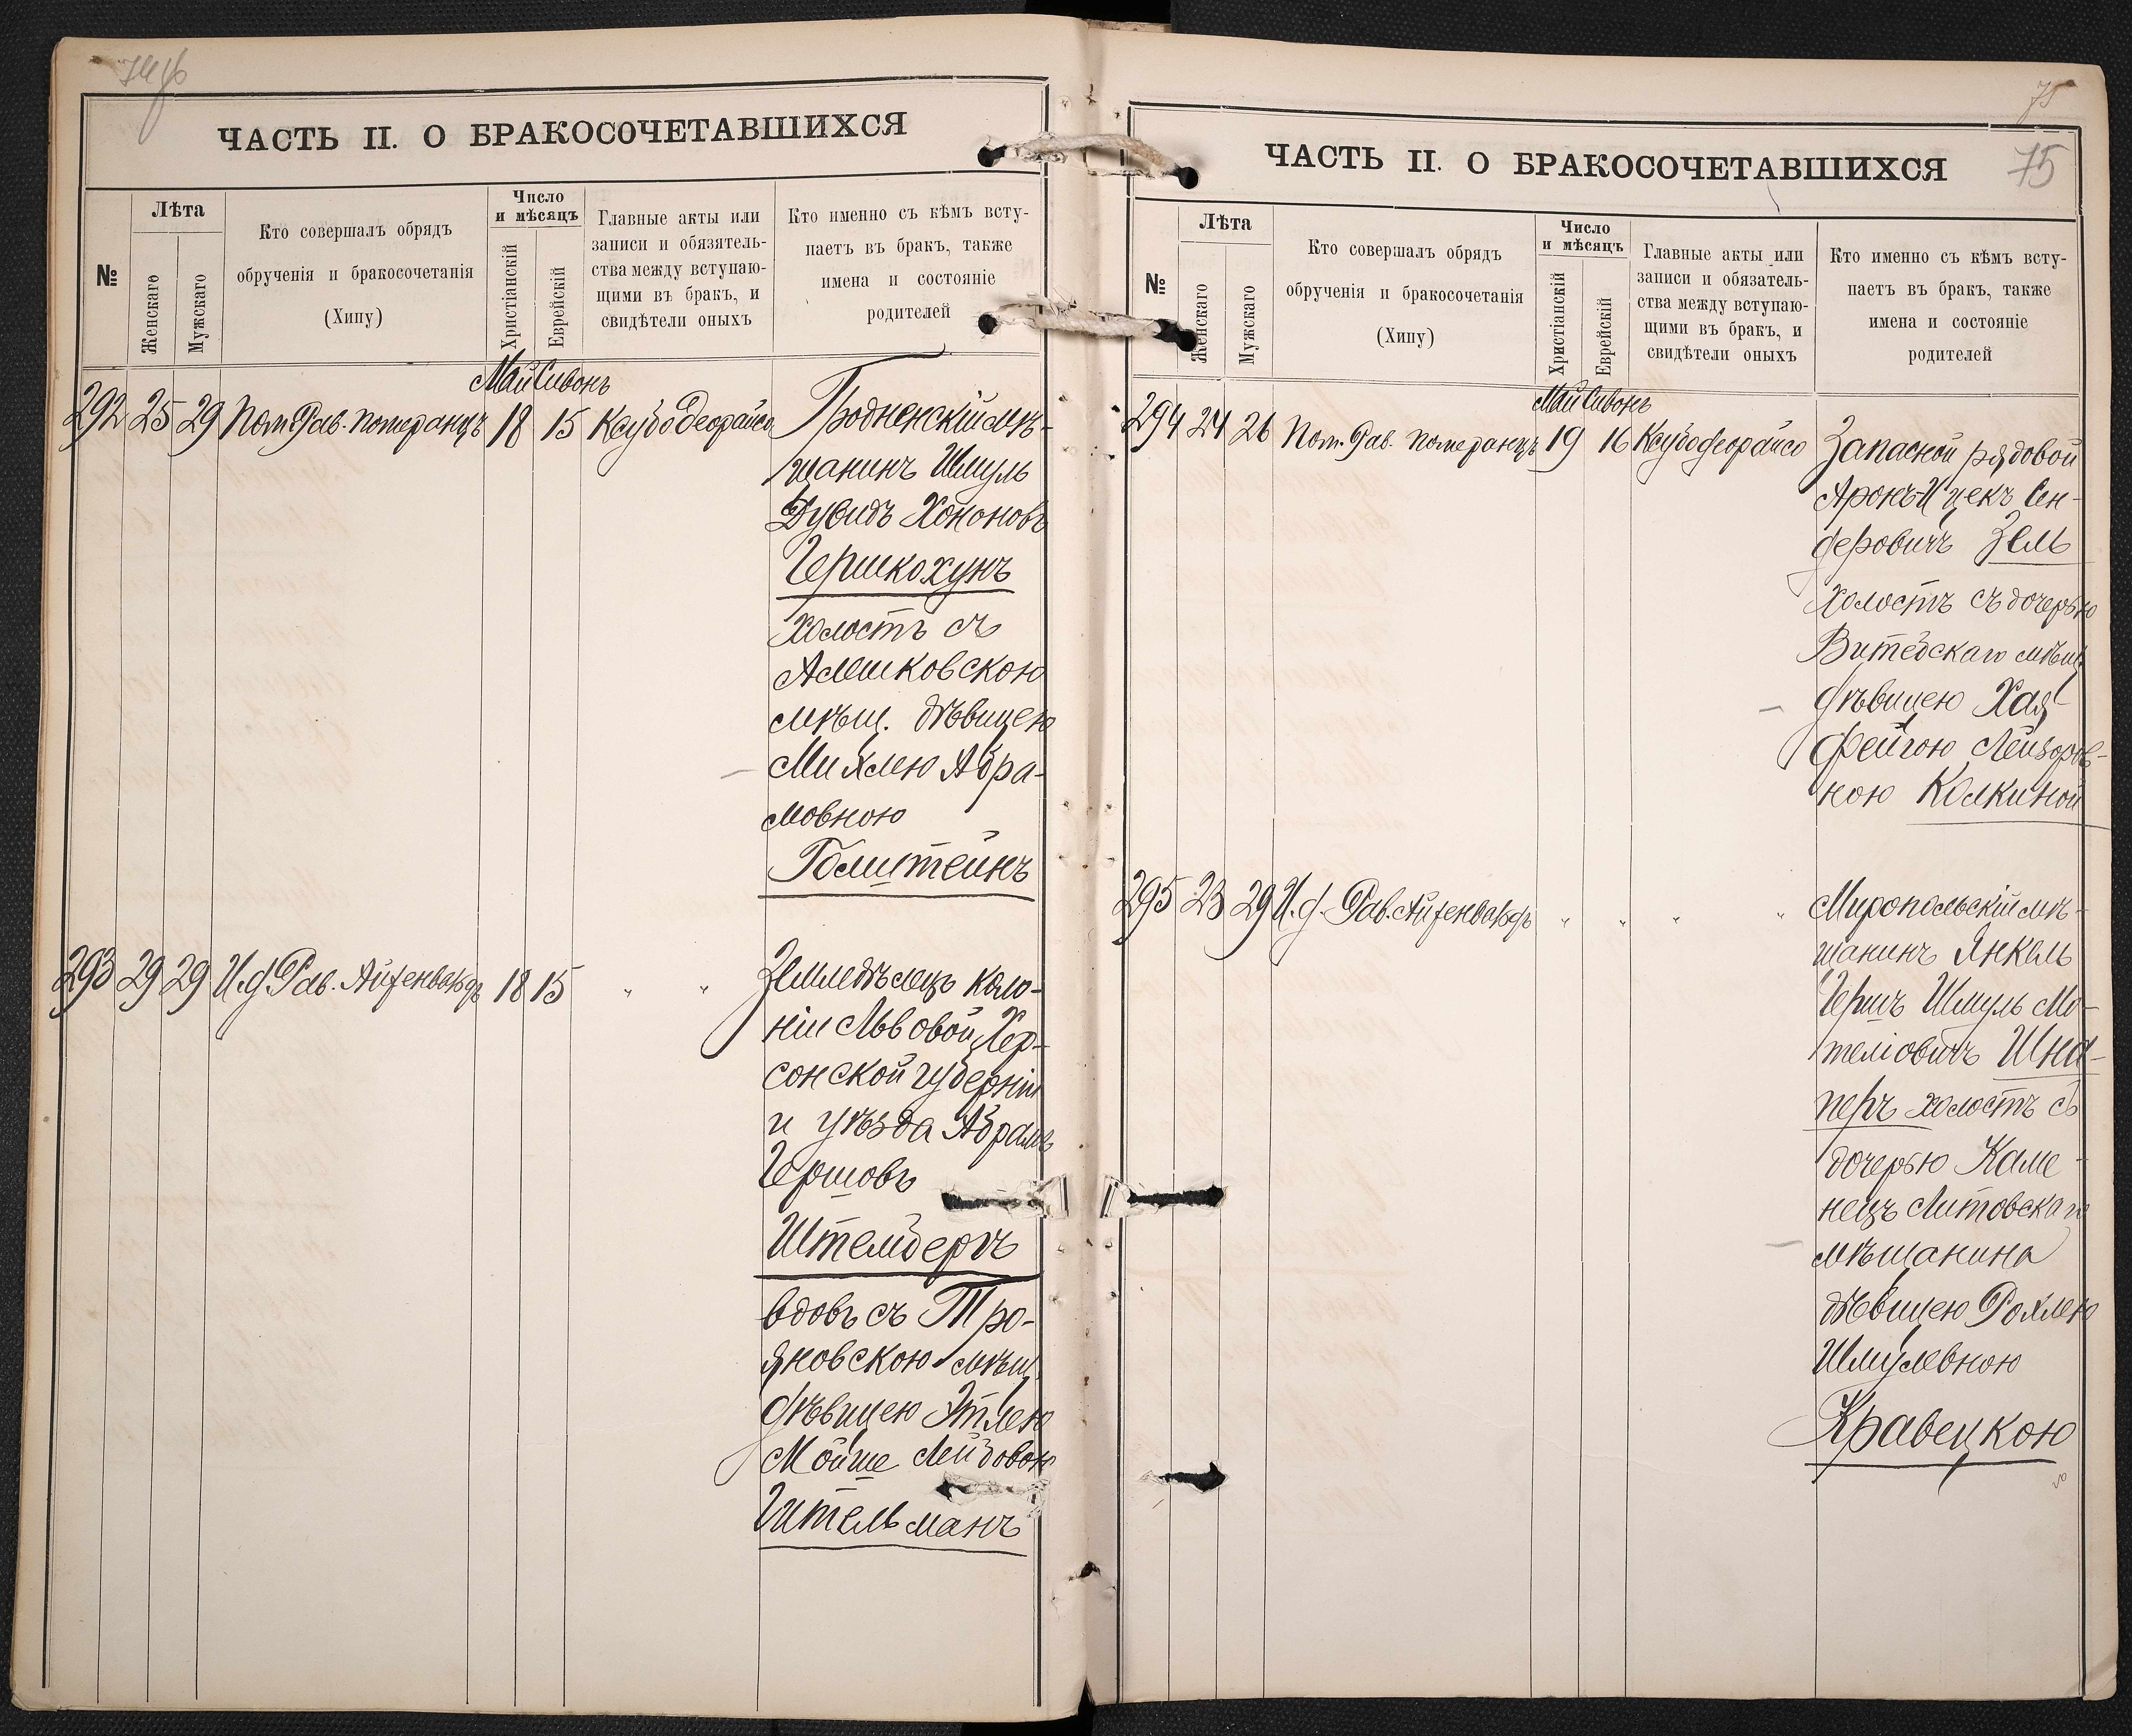 74об
ЧАСТЬ II. О БРАКОСОЧЕТАВШИХСЯ
№
Лѣта
Женскаго
Мужскаго
Кто совершалъ обрядъ
обрученія и бракосочетанія
(Хипу)
Число
и мѣсяцъ
Христіанскій
Еврейскій
Главные акты или
записи и обязатель-
ства между вступаю-
щими въ бракъ, и
свидѣтели оныхъ
Кто именно съ кѣмъ всту-
паетъ въ бракъ, также
имена и состояніе
родителей
Май Сивонъ
292 25 29 Пом. Рав. Померанцъ 18 15 Ксубо Деорайсо Гродненскій мѣ-
щанинъ Шмуль
Дувидъ Хононовъ
Гершкохунъ
холостъ съ
Алешковскою
мѣщ. дѣвицею
Михлею Абра-
мовною
Голштейнъ
293 29 29 И.д. Рав. Айзенвардъ 18 15 " " Земледѣлецъ коло-
ніи Львовой, Хер-
сонской губерніи
и уѣзда Абрамъ
Гершовъ
Штембергъ
вдовъ съ Тро-
яновскою мѣщ.
дѣвицею Этлею
Мойше Лейбовою
Гительманъ
75
75
ЧАСТЬ II. О БРАКОСОЧЕТАВШИХСЯ
№
Лѣта
Женскаго
Мужскаго
Кто совершалъ обрядъ
обрученія и бракосочетанія
(Хипу)
Число
и мѣсяцъ
Христіанскій
Еврейскій
Главные акты или
записи и обязатель-
ства между вступаю-
щими въ бракъ, и
свидѣтели оныхъ
Кто именно съ кѣмъ всту-
паетъ въ бракъ, также
имена и состояніе
родителей
Май Сивонъ
294 24 26 Пом. Рав. Померанцъ 19 16 Ксубо деорайсо Запасной рядовой
Аронъ-Ицекъ Сен-
деровичъ Зель
холостъ съ дочерью
Витебскаго мѣщ.
дѣвицею Хая
Фейгою Лейзоров-
ною Колкиной
295 23 29 И.д. Рав. Айзенвардъ " " " " Миропольскій мѣ-
щанинъ Янкель
Гершъ Шмуль Мо-
теліовичъ Шна-
перъ холостъ съ
дочерью Каме-
нецъ Литовскаго
мѣщанина
дѣвицею Рохлею
Шмулевною
Кравецкою